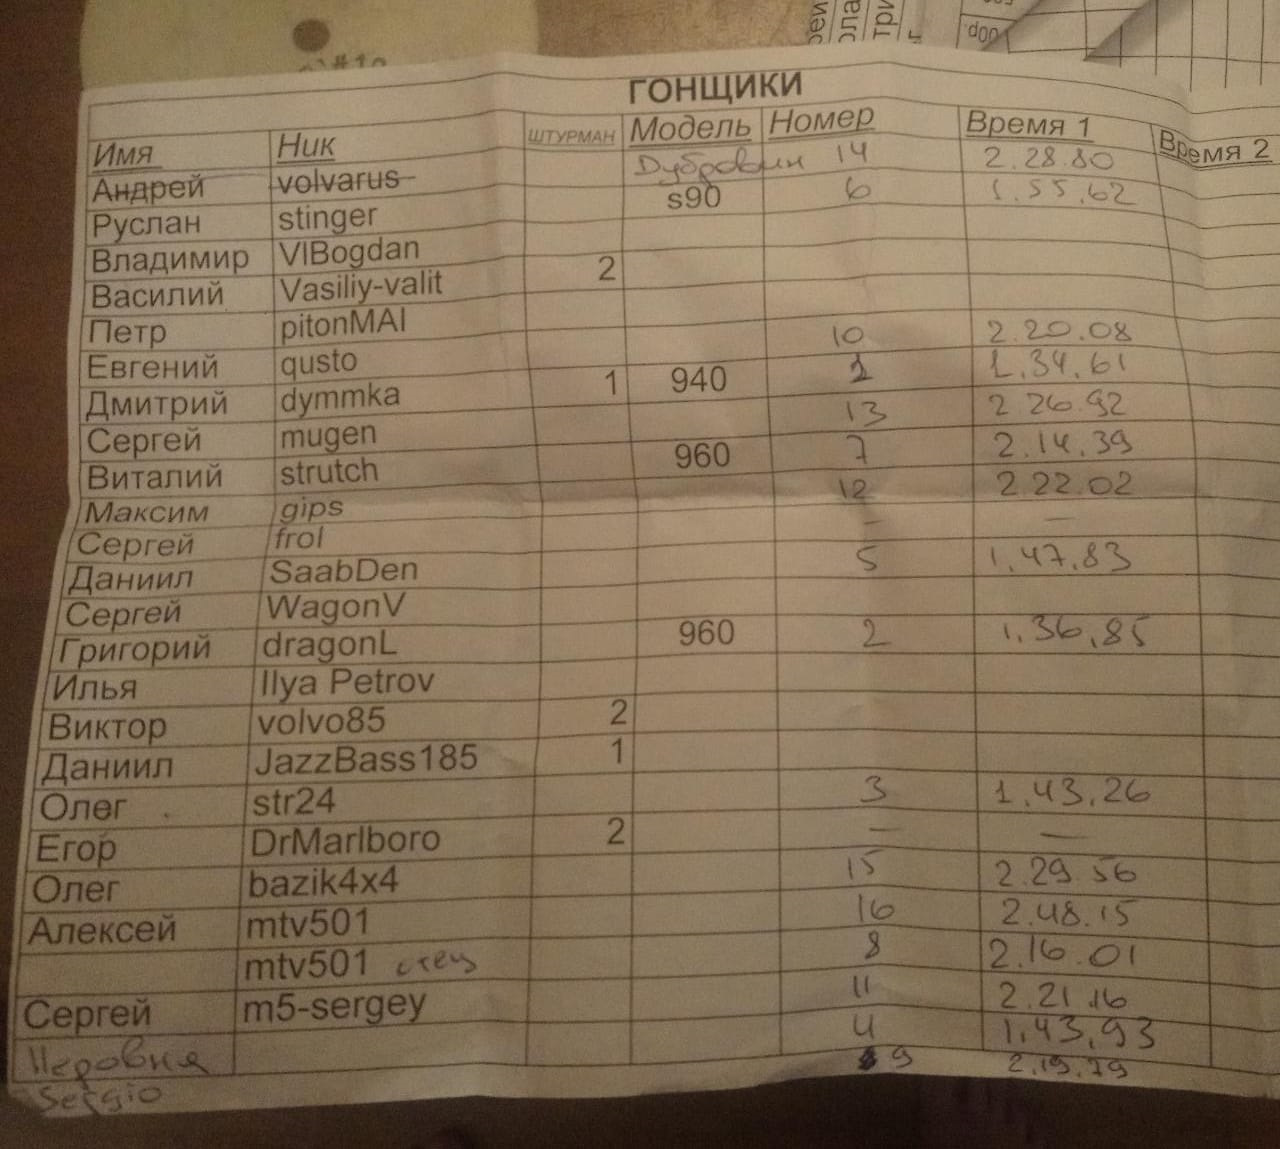 ГОНЩИКИ
Имя Ник ШТУРМАН Модель Номер Время 1 Время 2
Андрей volvarus Дубровин 14 2.28.80
Руслан stinger s90 6 1.55.62
Владимир VIBogdan
Василий Vasiliy-valit 2
Петр pitonMAI
Евгений qusto 10 2.20.08
Дмитрий dymmka 1 940 1 1.34.61
Сергей mugen 13 2.26.92
Виталий strutch 960 7 2.14.39
Максим gips 12 2.22.02
Сергей frol — —
Даниил SaabDen 5 1.47.83
Сергей WagonV
Григорий dragonL 960 2 1.36.85
Илья Ilya Petrov
Виктор volvo85 2
Даниил JazzBass185 1
Олег str24 3 1.43.26
Егор DrMarlboro 2 — —
Олег bazik4x4 15 2.29.56
Алексей mtv501 16 2.48.15
mtv501 отец 8 2.16.01
Сергей m5-sergey 11 2.21.16
Неровня 4 1.43.93
Sergio 9 2.19.79